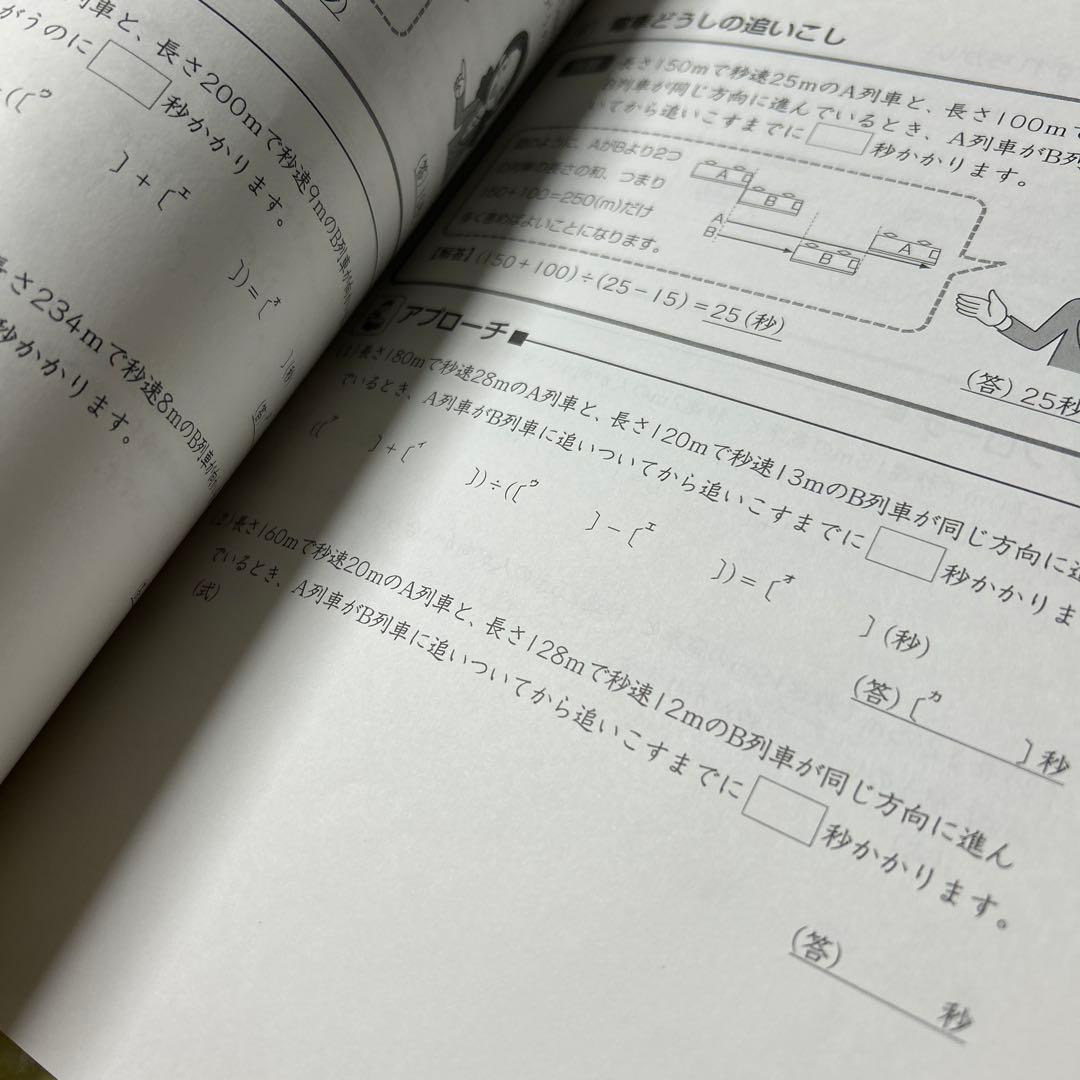 列車と、長さ200mで秒速9mのB列車が
がうのに 秒かかります。
ウ
] + [エ
]) = [オ
](秒)
長さ234mで秒速8mのB列車が
秒かかります。
どうしの追いこし
長さ150mで秒速25mのA列車と、長さ100mで
列車が同じ方向に進んでいるとき、A列車がB列
いてから追いこすまでに 秒かかります。
のように、AがBより2つ
の列車の長さの和、つまり
150+100=250(m)だけ
多く進めばよいことになります。
A
B
A
B
B
A
【解答】(150+100)÷(25-15)=25(秒)
(答)25秒
アプローチ
(1)長さ180mで秒速28mのA列車と、長さ120mで秒速13mのB列車が同じ方向に進
でいるとき、A列車がB列車に追いついてから追いこすまでに 秒かかりま
([ア ]+[イ ])÷([ウ ]-[エ ])=[オ ](秒)
(答)[カ ]秒
(2)長さ160mで秒速20mのA列車と、長さ128mで秒速12mのB列車が同じ方向に進ん
でいるとき、A列車がB列車に追いついてから追いこすまでに 秒かかります。
(式)
(答) 秒